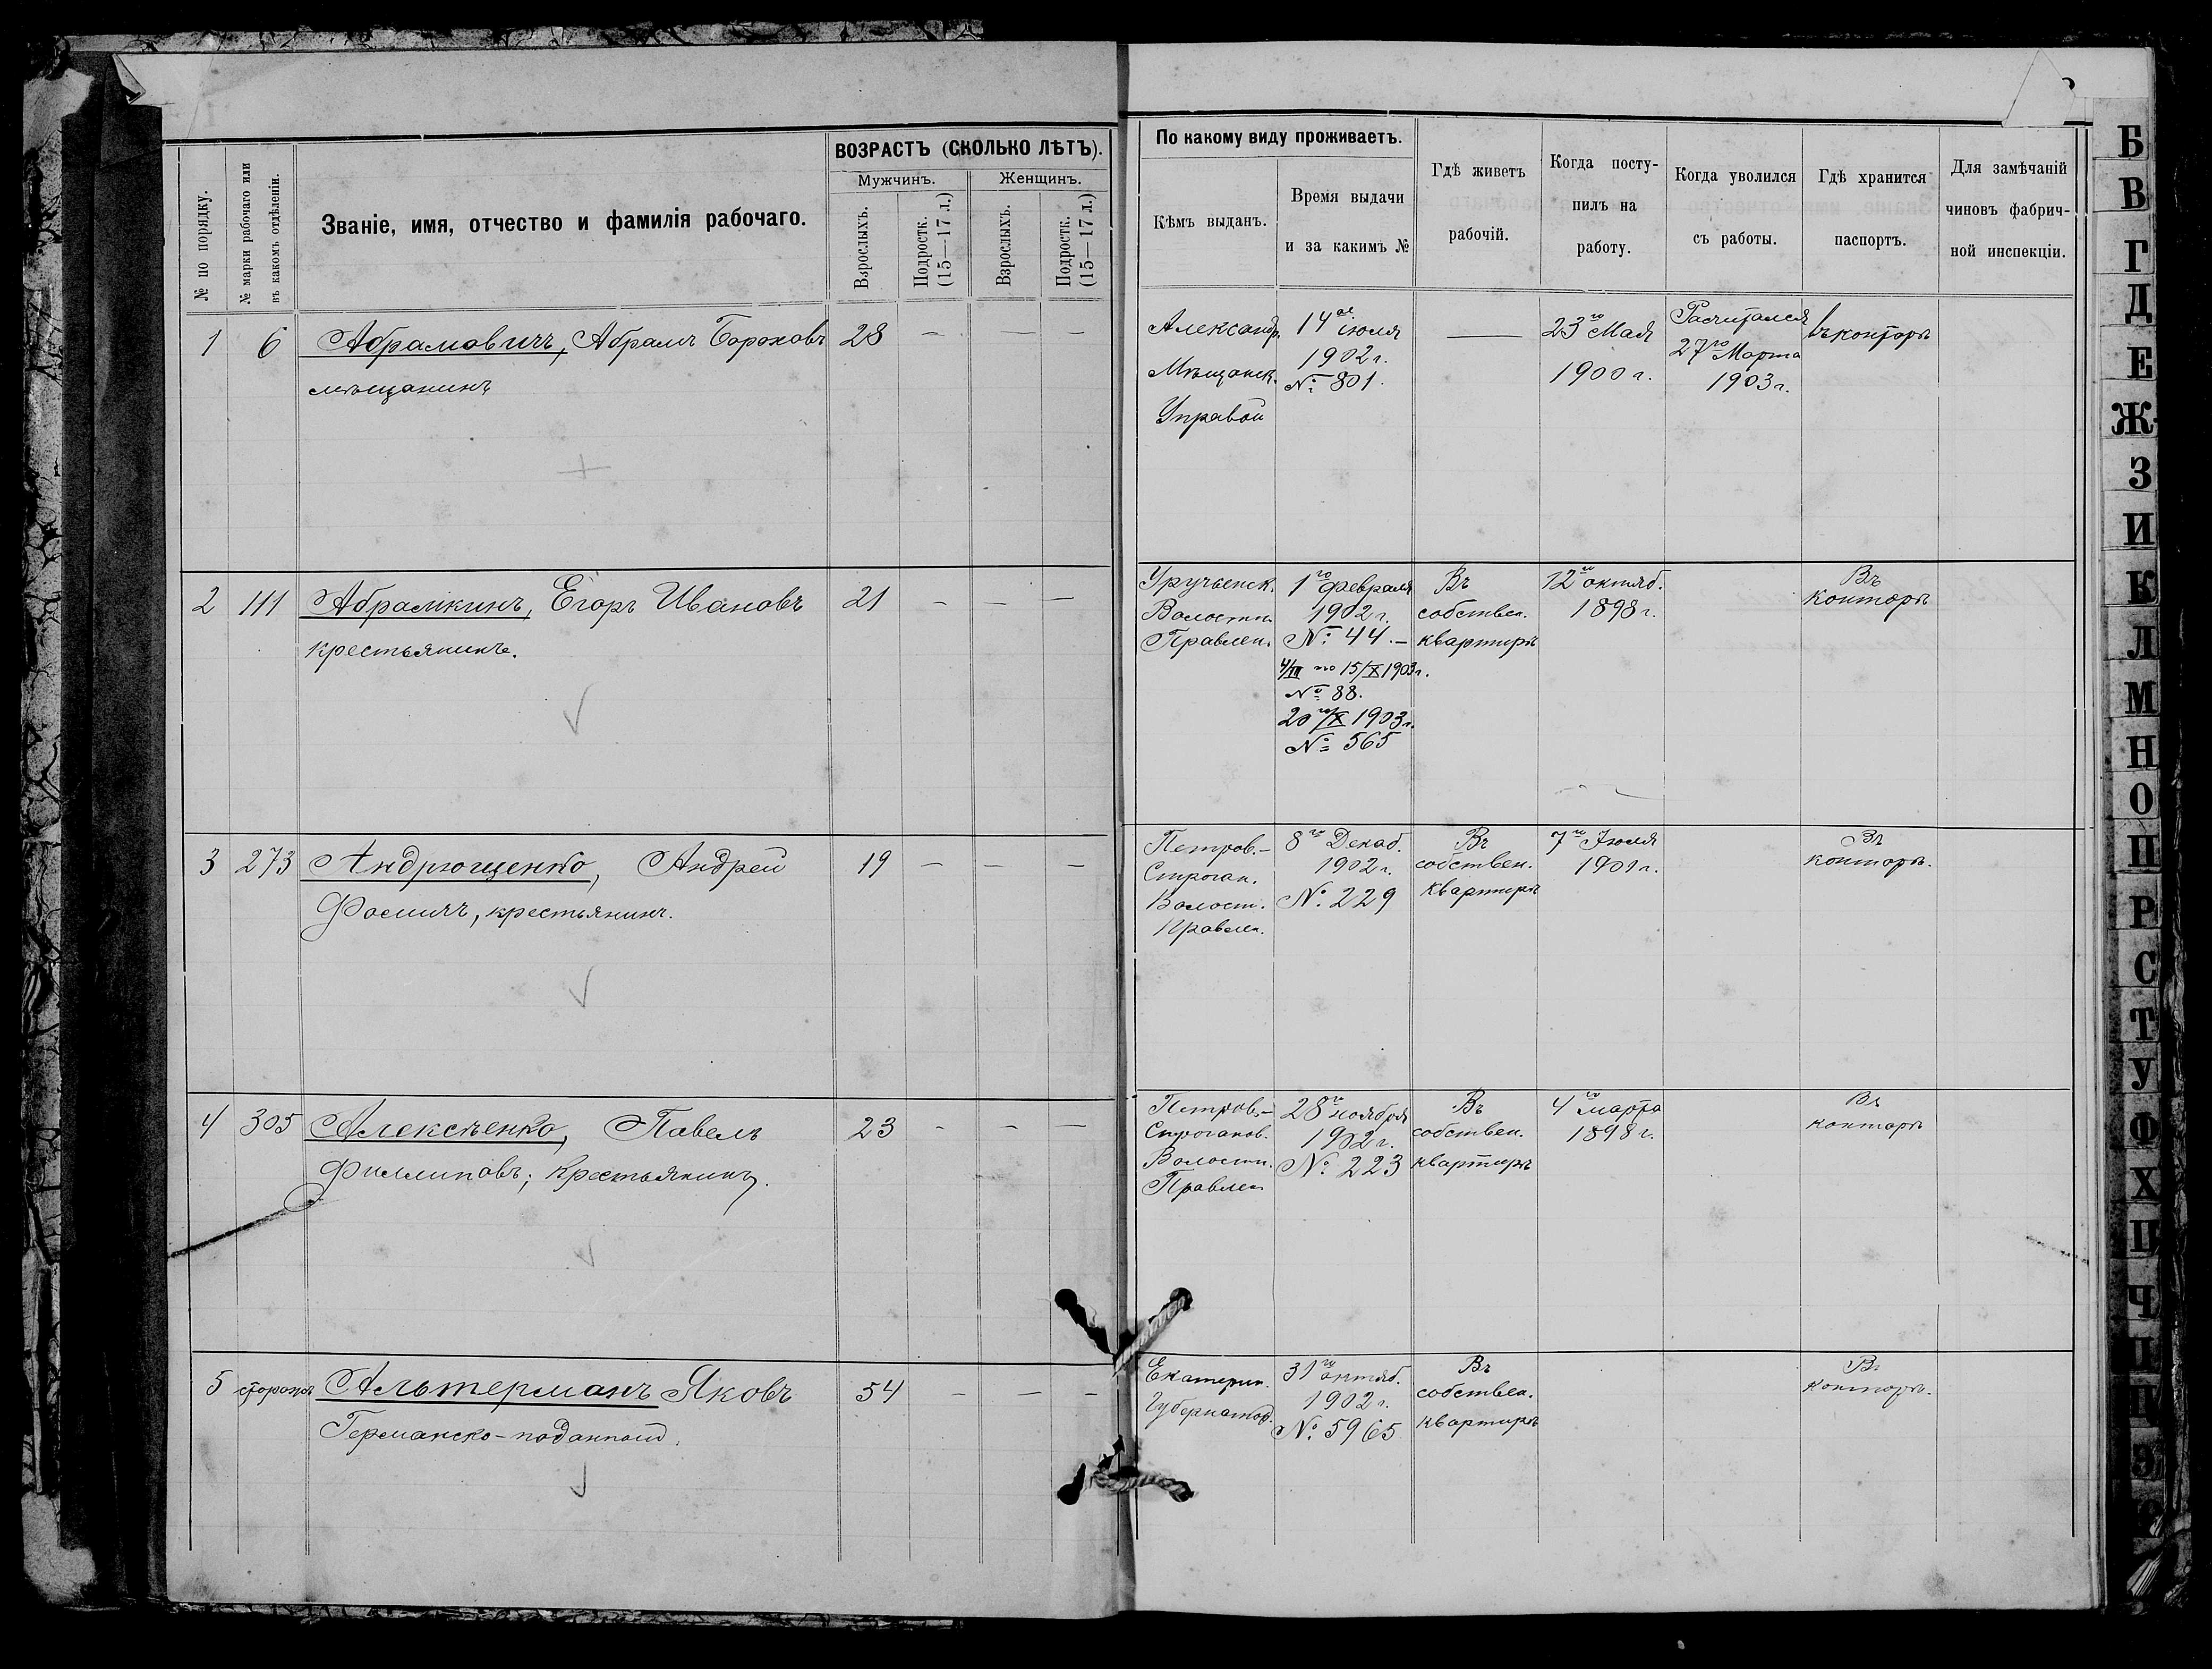 № по порядку.
№ марки рабочаго или
въ какомъ отдѣленіи.
Званіе, имя, отчество и фамилія рабочаго.
ВОЗРАСТЪ (СКОЛЬКО ЛѢТЪ).
Мужчинъ.
Женщинъ.
Взрослыхъ.
Подростк.
(15—17 л.)
Взрослыхъ.
Подростк.
(15—17 л.)
По какому виду проживаетъ.
Кѣмъ выданъ.
Время выдачи
и за какимъ №
Гдѣ живетъ
рабочій.
Когда посту-
пилъ на
работу.
Когда уволился
съ работы.
Гдѣ хранится
паспортъ.
Для замѣчаній
чиновъ фабрич-
ной инспекціи.
1 6 Абрамовичъ, Абрамъ Бороховъ 28 — — —
мѣщанинъ
Александр.
Мѣщанск.
Управой
14го іюля
1902 г.
№ 801.
—
23го Мая
1900 г.
Расчитался
27го Марта
1903 г.
въ конторѣ
2 111 Абрамкинъ, Егоръ Ивановъ 21 — — —
крестьянинъ.
Уручьенск.
Волостн.
Правлен.
1го февраля
1902 г.
№ 44. —
4/III по 15/X 1903 г.
№ 88.
20го/X 1903 г.
№ 565
Въ
собствен.
квартирѣ
12го октяб.
1898 г.
Въ
конторѣ
3 273 Андрющенко, Андрей 19 — — —
Фомичъ, крестьянинъ.
Петров.-
Строган.
Волост.
Правлен.
8го Декаб.
1902 г.
№ 229
Въ
собствен.
квартирѣ
7го Іюля
1901 г.
Въ
конторѣ.
4 305 Алексѣенко, Павелъ 23 - — —
Филлиповъ; крестьянинъ.
Петров.-
Строганов.
Волостн.
Правлен
28го ноября
1902 г.
№ 223
Въ
собствен.
квартирѣ
4го марта
1898 г.
Въ
конторѣ
5 сторожъ Альтерманъ Яковъ 54 — — -
Германско-поданный.
Екатерин.
Губернатор.
31го октяб.
1902 г.
№ 5965
Въ
собствен.
квартирѣ
Въ
конторѣ.
Б
В
Г
Д
Е
Ж
З
И
К
Л
М
Н
О
П
Р
С
Т
У
Ф
Х
Ц
Ч